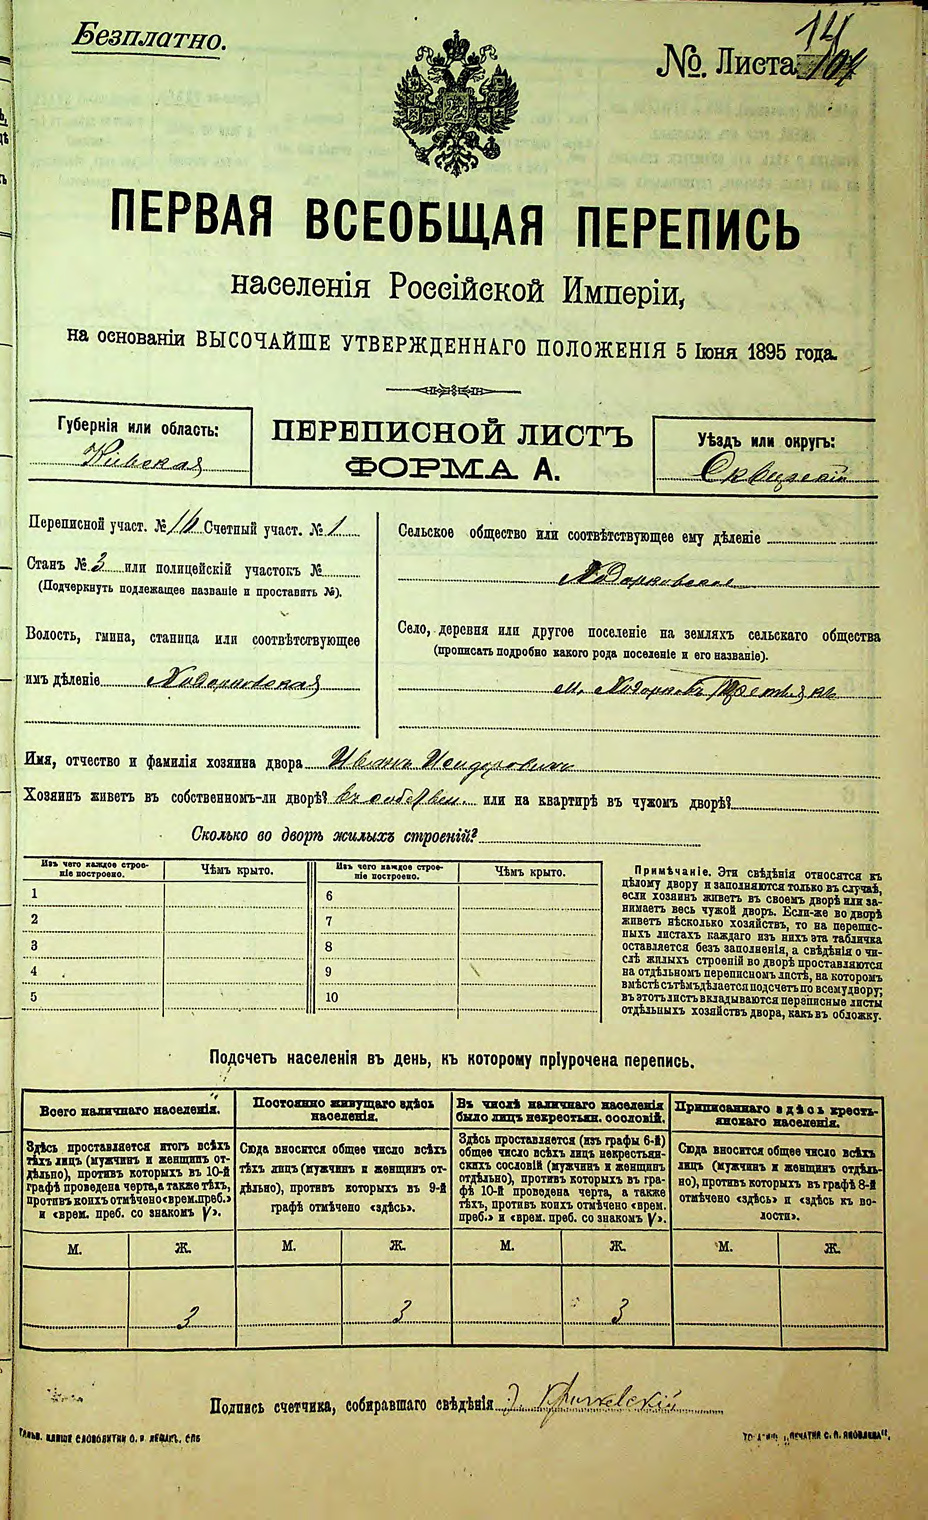 Безплатно.
№. Листа 14
ПЕРВАЯ ВСЕОБЩАЯ ПЕРЕПИСЬ
населенія Россійской Имперіи,
на основаніи ВЫСОЧАЙШЕ УТВЕРЖДЕННАГО ПОЛОЖЕНІЯ 5 Іюня 1895 года.
Губернія или область:
Кіевская
ПЕРЕПИСНОЙ ЛИСТЪ
ФОРМА А.
Уѣздъ или округъ:
Сквирскій
Переписной участ. № Счетный участ. № 1
Станъ № 3 или полицейскій участокъ №
(Подчеркнуть подлежащее названіе и проставить №).
Волость, гмина, станица или соотвѣтствующее
имъ дѣленіе Ходорковская
Сельское общество или соотвѣтствующее ему дѣленіе
Ходорковское
Село, деревня или другое поселеніе на земляхъ сельскаго общества
(прописать подробно какого рода поселеніе и его названіе).
м. Ходорковъ
Имя, отчество и фамилія хозяина двора
Хозяинъ живетъ въ собственномъ-ли дворѣ? въ собствен. или на квартирѣ въ чужомъ дворѣ?
Сколько во дворѣ жилыхъ строеній?
Изъ чего каждое строе-
ніе построено.
Чѣмъ крыто.
1
2
3
4
5
Изъ чего каждое строе-
ніе построено.
Чѣмъ крыто.
6
7
8
9
10
Примѣчаніе. Эти свѣдѣнія относятся къ
цѣлому двору и заполняются только въ случаѣ,
если хозяинъ живетъ въ своемъ дворѣ или за-
нимаетъ весь чужой дворъ. Если-же во дворѣ
живетъ нѣсколько хозяйствъ, то на перепис-
ныхъ листахъ каждаго изъ нихъ эта табличка
оставляется безъ заполненія, а свѣдѣнія о чи-
слѣ жилыхъ строеній во дворѣ проставляются
на отдѣльномъ переписномъ листѣ, на которомъ
вмѣстѣ съ тѣмъ дѣлается подсчетъ по всему двору;
въ этотъ листъ вкладываются переписные листы
отдѣльныхъ хозяйствъ двора, какъ въ обложку.
Подсчетъ населенія въ день, къ которому пріурочена перепись.
Всего наличнаго населенія.
Здѣсь проставляется итогъ всѣхъ
тѣхъ лицъ (мужчинъ и женщинъ от-
дѣльно), противъ которыхъ въ 10-й
графѣ проведена черта, а также тѣхъ,
противъ коихъ отмѣчено «врем. преб.»
и «врем. преб. со знакомъ V».
М. Ж.
3
Постоянно живущаго здѣсь
населенія.
Сюда вносится общее число всѣхъ
тѣхъ лицъ (мужчинъ и женщинъ от-
дѣльно), противъ которыхъ въ 9-й
графѣ отмѣчено «здѣсь».
М. Ж.
3
Въ числѣ наличнаго населенія
было лицъ некрестьян. сословій.
Здѣсь проставляется (изъ графы 6-й)
общее число всѣхъ лицъ некрестьян-
скихъ сословій (мужчинъ и женщинъ
отдѣльно), противъ которыхъ въ гра-
фѣ 10-й проведена черта, а также
тѣхъ, противъ коихъ отмѣчено «врем.
преб.» и «врем. преб. со знакомъ V».
М. Ж.
3
Приписаннаго здѣсь кресть-
янскаго населенія.
Сюда вносится общее число всѣхъ
лицъ (мужчинъ и женщинъ отдѣль-
но), противъ которыхъ въ графѣ 8-й
отмѣчено «здѣсь» и «здѣсь къ во-
лости».
М. Ж.
Подпись счетчика, собиравшаго свѣдѣнія